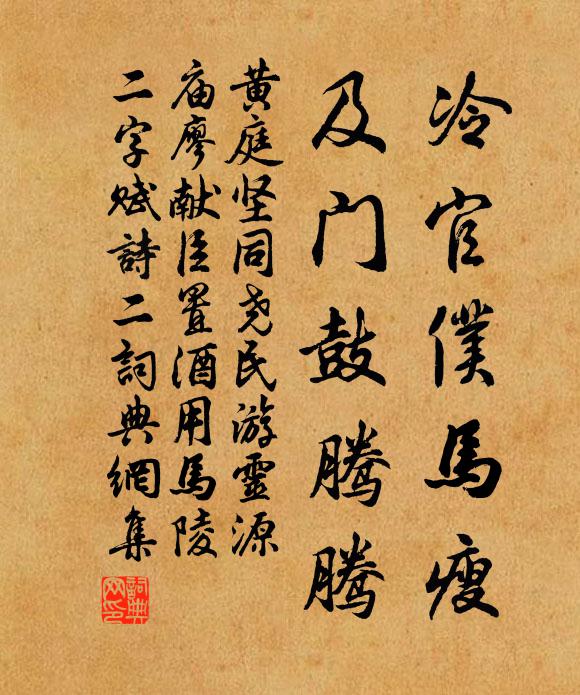 冷官僕馬瘦
及门鼓腾腾
黄庭坚同尧民游靈源
庙廖献臣置酒用馬陵
二字赋詩二詞典網集
詞典網印